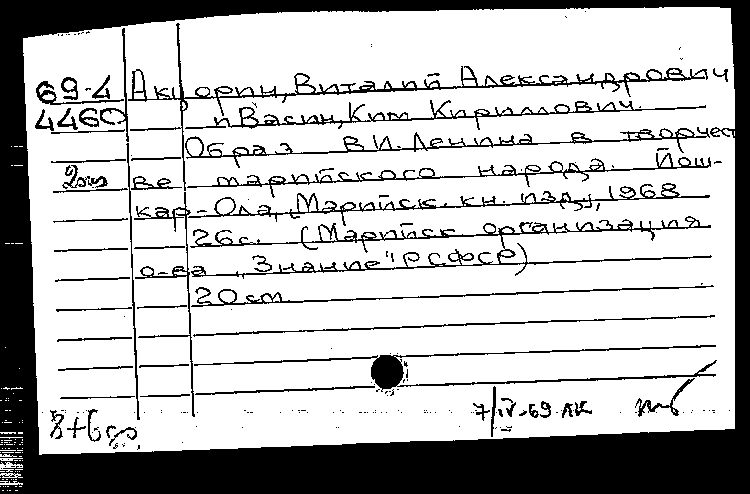 69-4 Акцорин, Виталий Александрович
4460 и Васин, Ким Кириллович.
Образ В.И. Ленина в творчест
ве марийского народа. Йош-
кар-Ола, [Марийск. кн. изд.], 1968
26 с. (Марийск организация
о-ва "Знание" РСФСР)
20 см
7/IV-69 АК